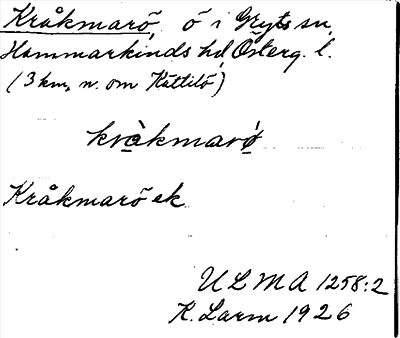 Kråkmarö, ö i Gryts sn,
Hammarkinds hd, Österg. l.
(3 km, n. om Kättilö)
kràkmarǿ
Kråkmarö ek
ULMA 1258:2
K. Larm 1926